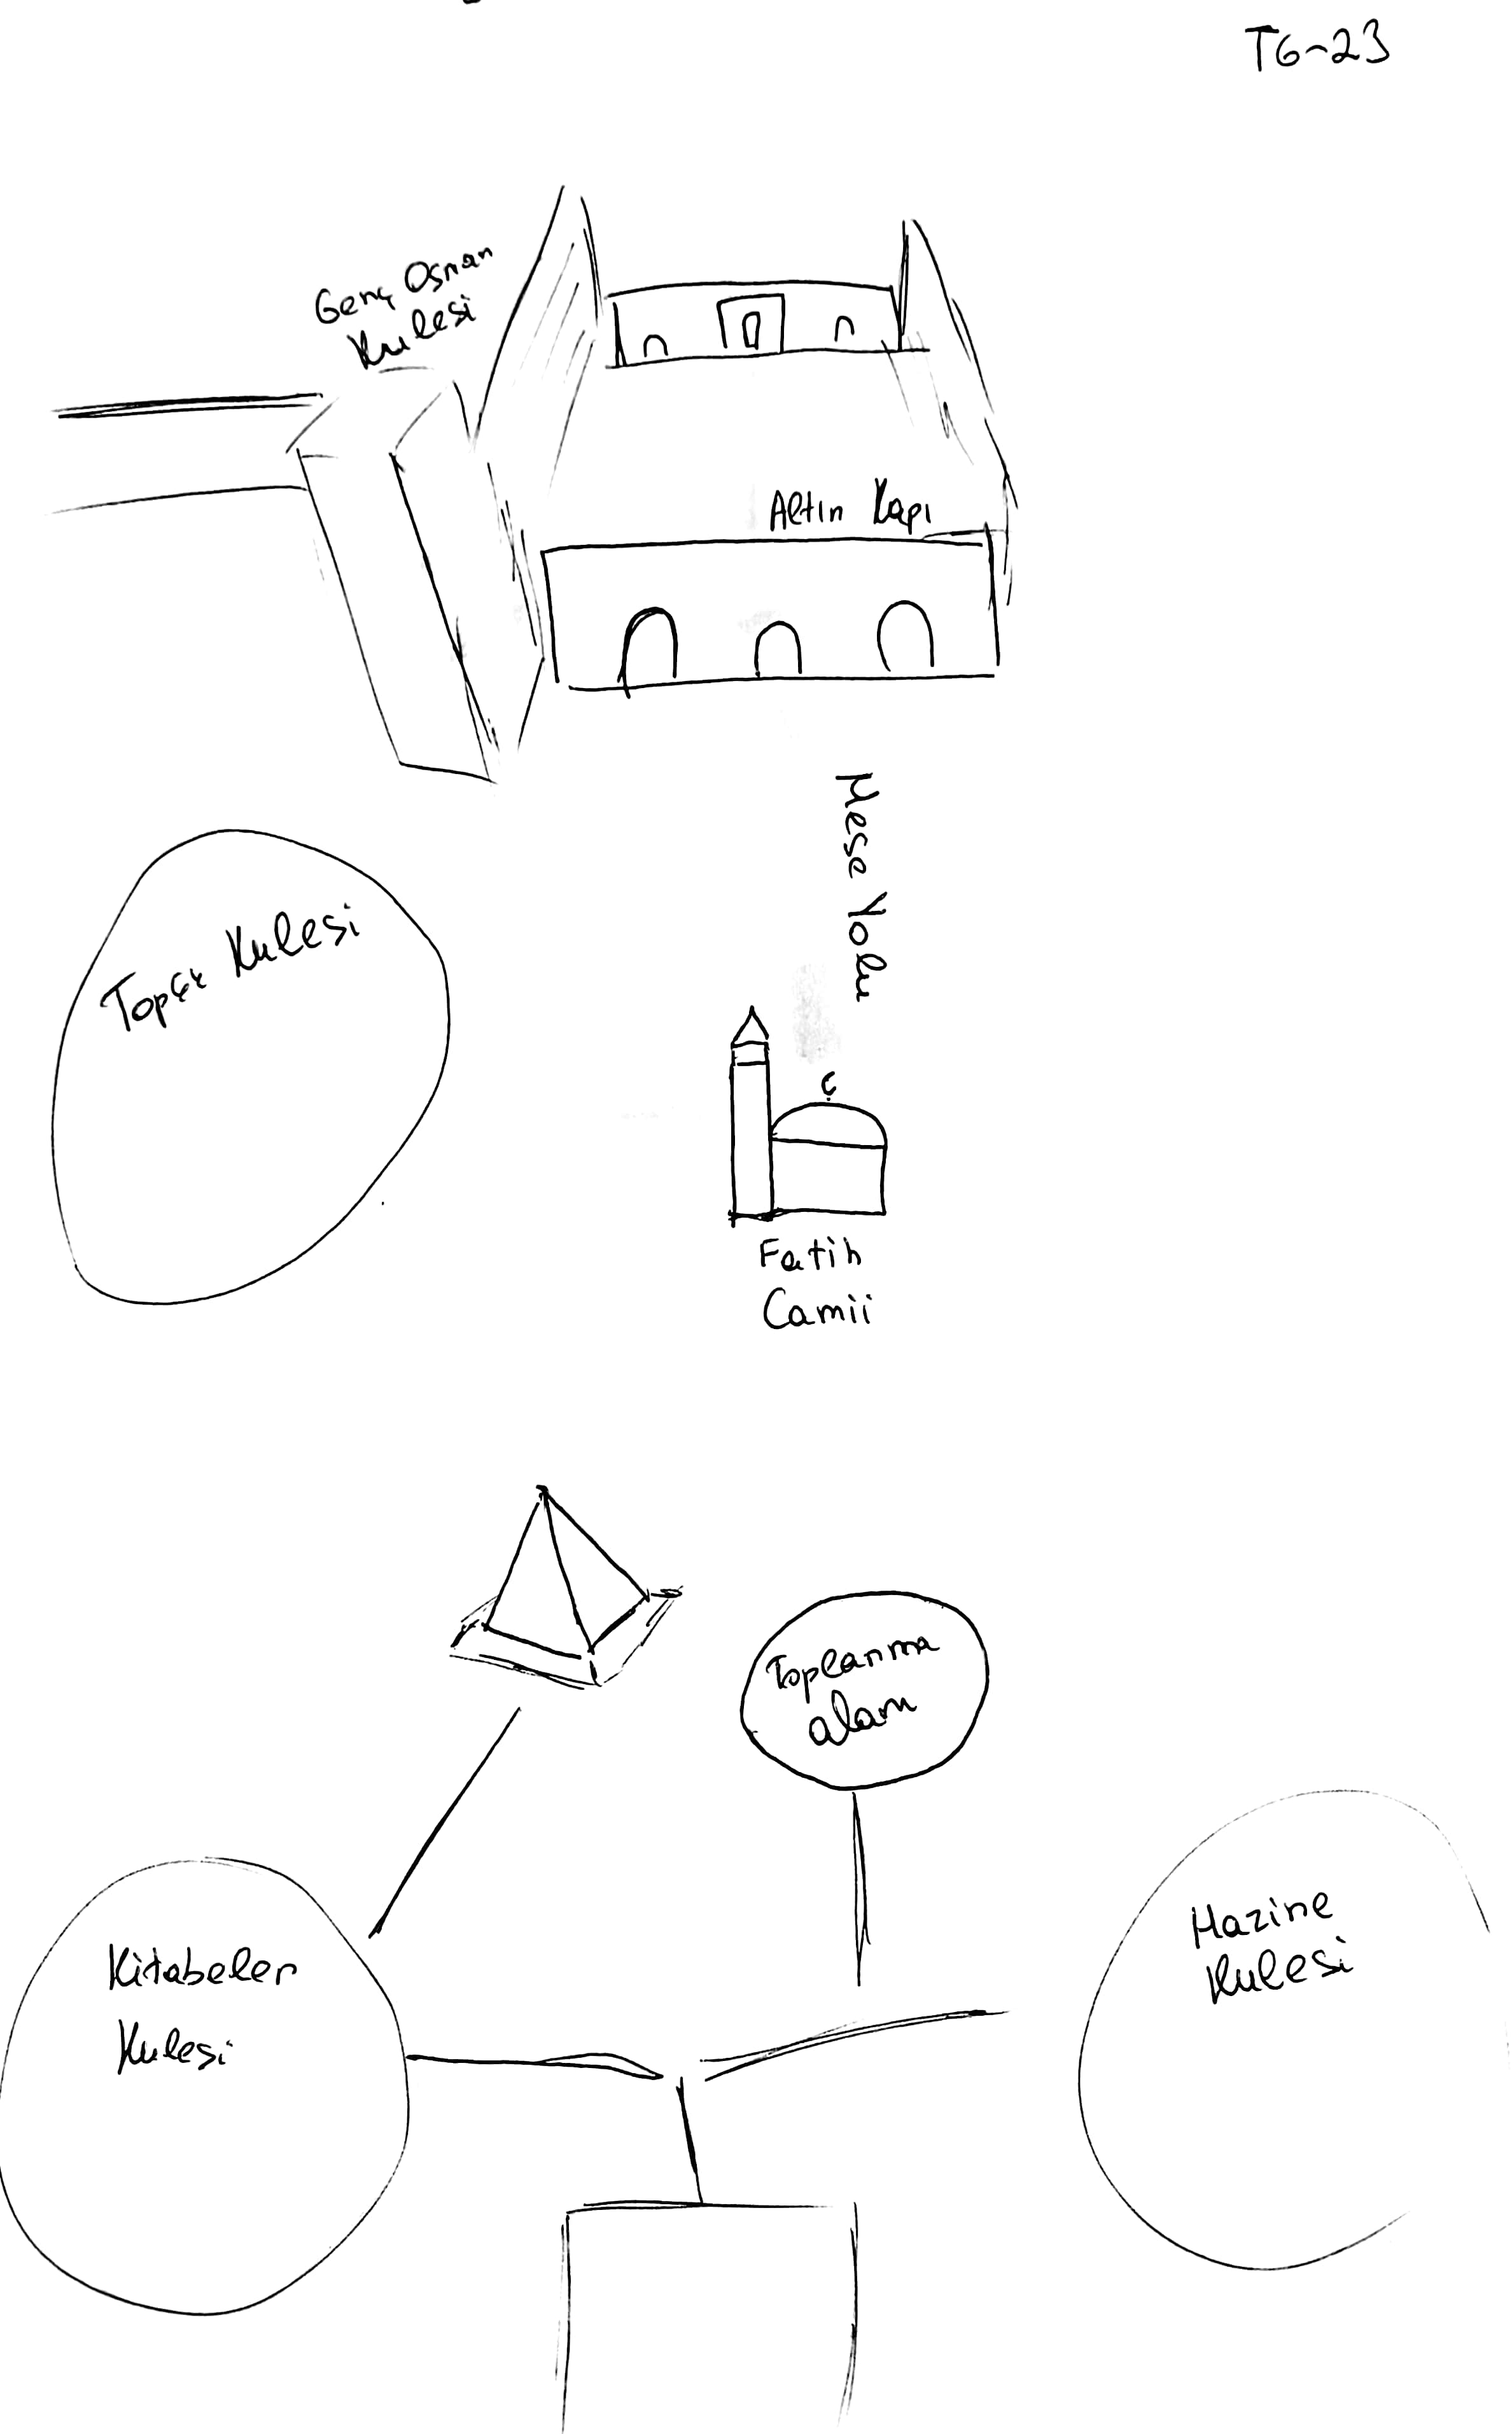 T6-23
Genç Osman
Kulesi
Altın Kapı
Mese Yolu
Topçu Kulesi
Fatih
Camii
Toplanma
alanı
Hazine
Kulesi
Kitabeler
Kulesi